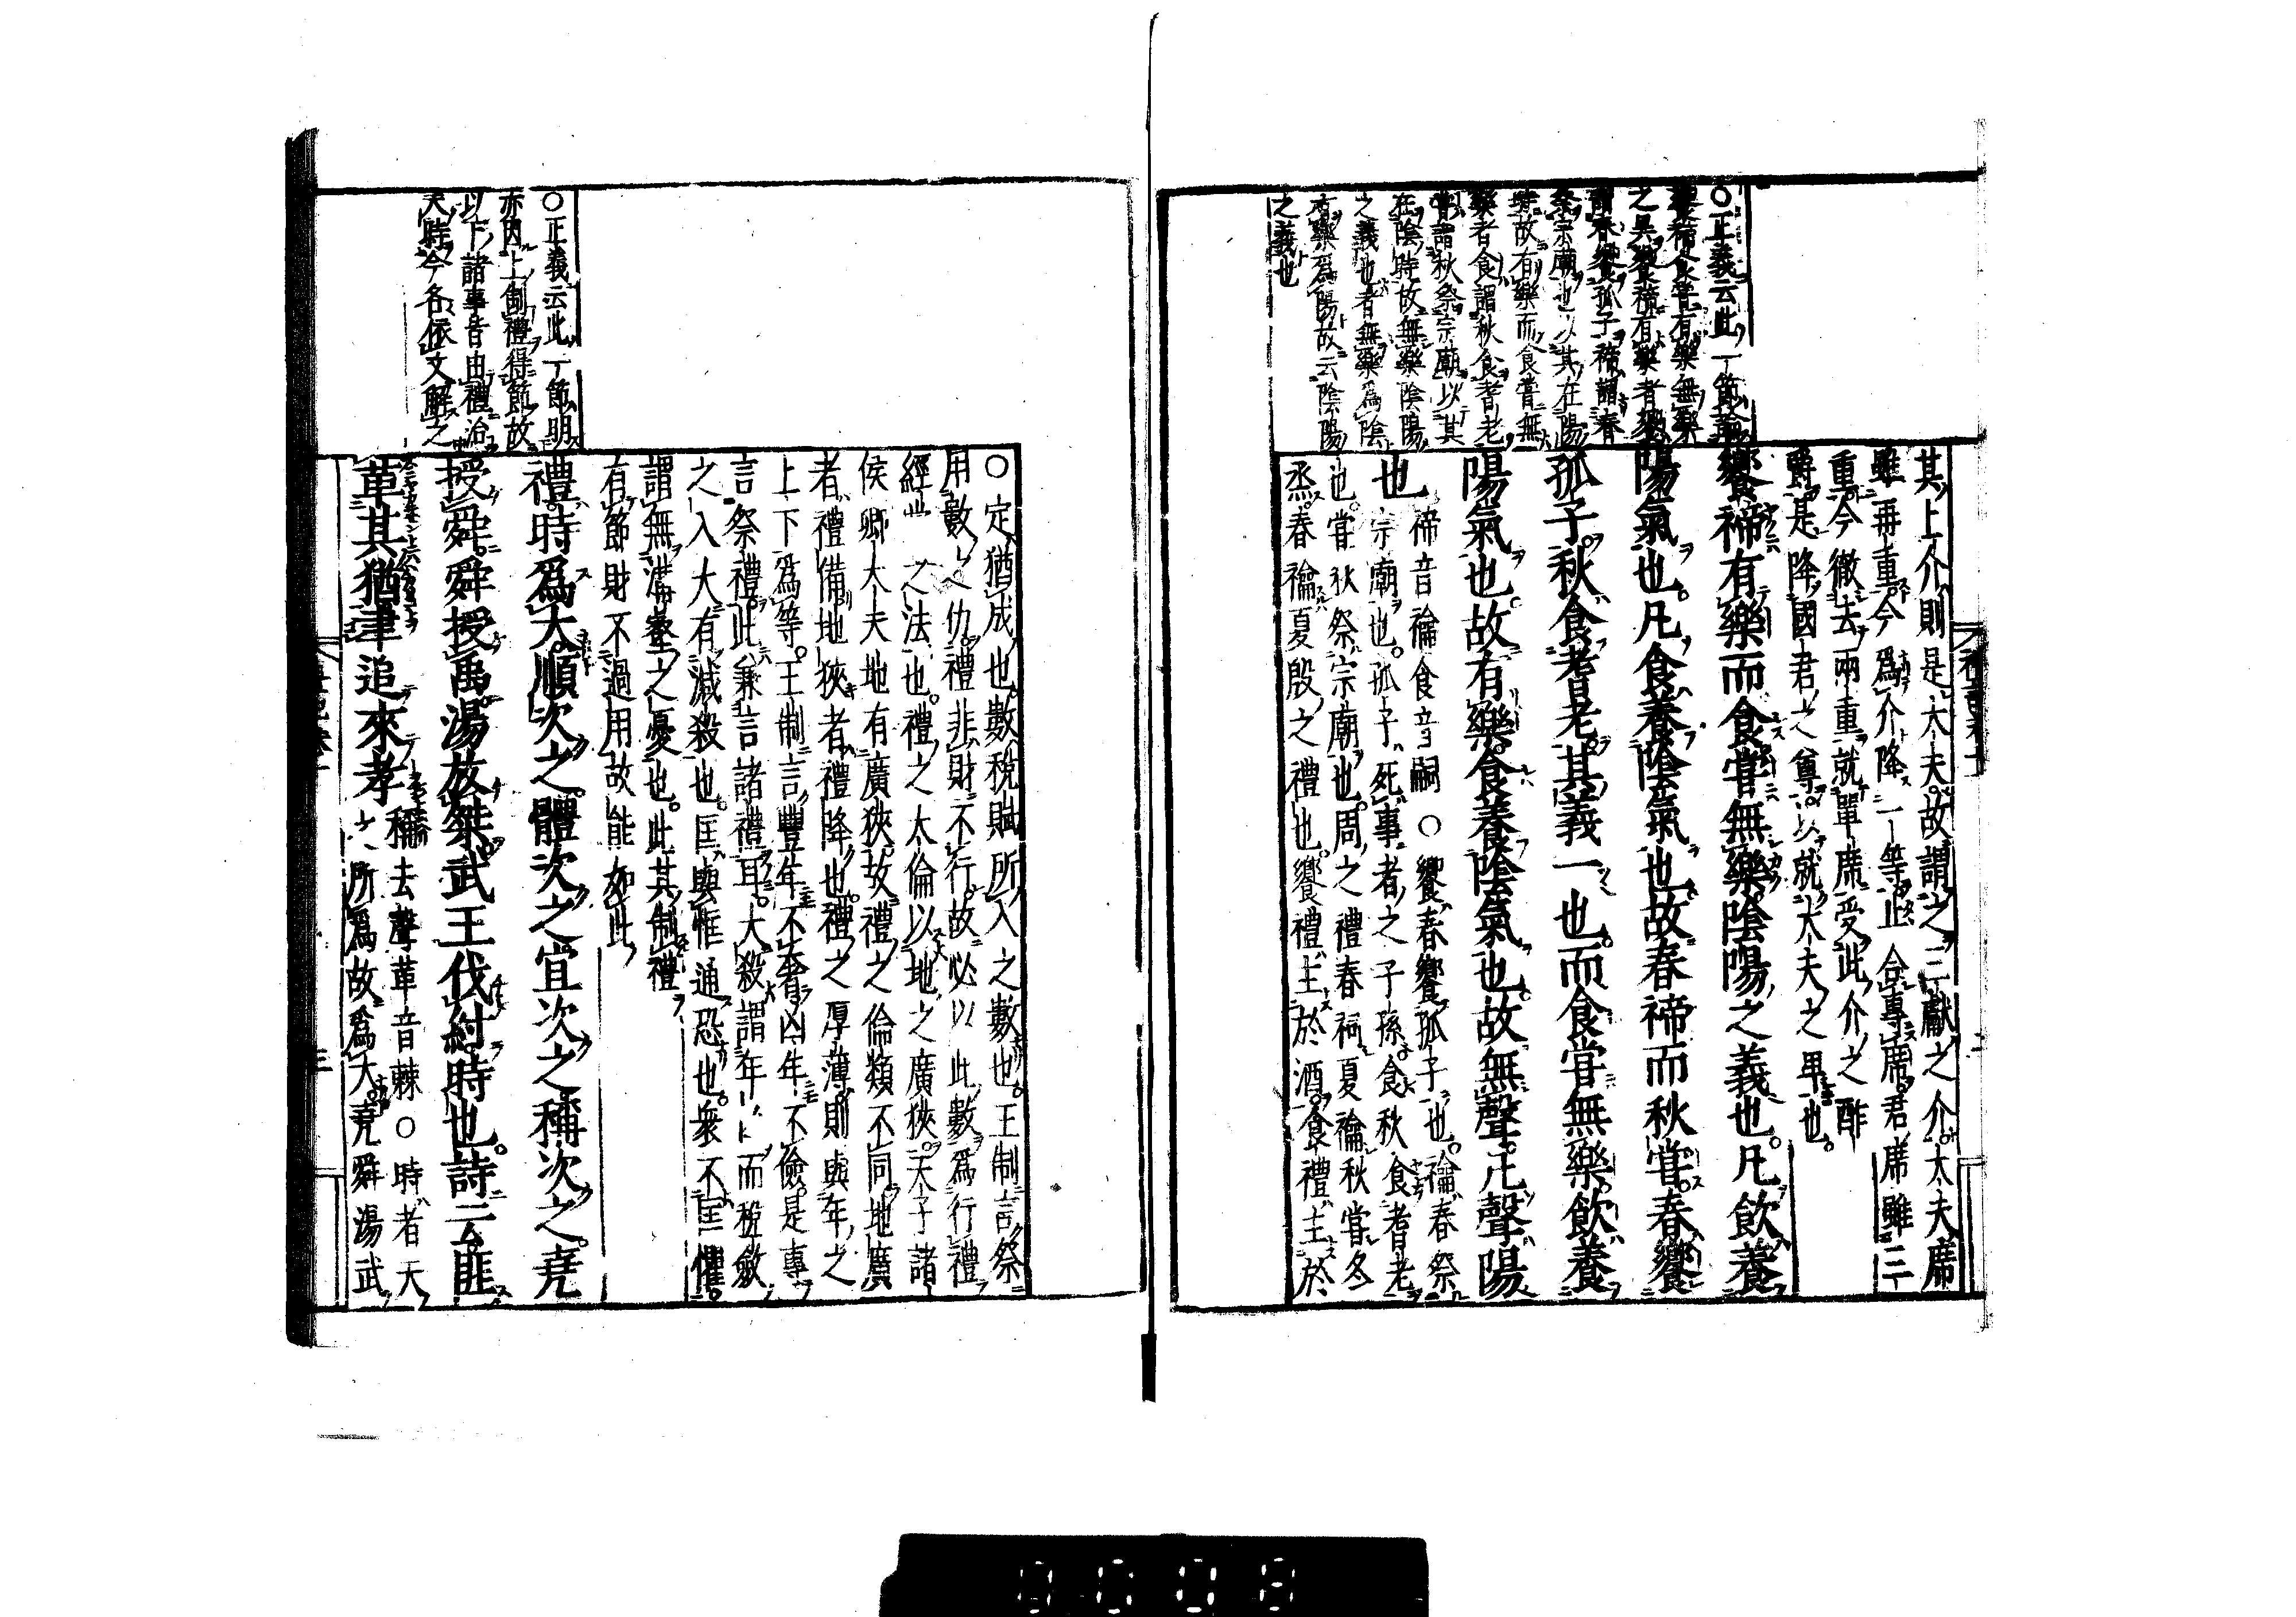 其上介則是大夫故謂之三獻之介大夫席
雖再重今爲介降一等止合專席君席雖三
重今徹去兩重就單席受此介之酢
爵是降國君之尊以就大夫之卑也
饗禘有樂而食嘗無樂陰陽之義也凡飲養
陽氣也凡食養陰氣也故春禘而秋嘗春饗
孤子秋食耆老其義一也而食嘗無樂飲養
陽氣也故有樂食養陰氣也故無聲凡聲陽
也
禘音禴食音嗣○饗春饗孤子也禴春祭
宗廟也孤子死事者之子孫食秋食耆老
也嘗秋祭宗廟也周之禮春祠夏禴秋嘗冬
烝春禴夏殷之禮也饗禮主於酒食禮主於
○正義云此一節論
饗禘食嘗有樂無樂
之異饗禘有樂者饗
謂春饗孤子禘謂春
祭宗廟也以其在陽
時故有樂而食嘗無
樂者食謂秋食耆老
嘗謂秋祭宗廟以其
在陰時故無樂陰陽
之義也者無樂爲陰
有樂爲陽故云陰陽
之義也
○定猶成也數稅賦所入之數也王制言祭
用數之仂禮非財不行故必以此數爲行禮
經 之法也禮之大倫以地之廣狹天子諸
侯卿大夫地有廣狹故禮之倫類不同地廣
者禮備地狹者禮降也禮之厚薄則與年之
上下爲等王制言豐年不奢凶年不儉是專
言祭禮此兼言諸禮耳大殺謂年 而稅斂
之入大有減殺也匡與恇通恐也衆不匡懼
謂無溝壑之憂也此其制禮
有節財不過用故能如此
禮時爲大順次之體次之宜次之稱次之堯
授舜舜授禹湯放桀武王伐紂時也詩云匪
革其猶聿追來孝
稱去聲革音棘○時者天
之所爲故爲大堯舜湯武
○正義云此一節明
亦因上制禮得節故
以下諸事皆由禮治
天時今各依文解之
0008